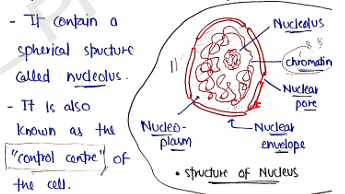 - It contain a
spherical structure
called nucleolus.
- It is also
known as the
"control centre" of
the cell.
Nucleolus
chromatin
Nuclear
pore
Nuclear
envelope
Nucleo-
plasm
• structure of Nucleus